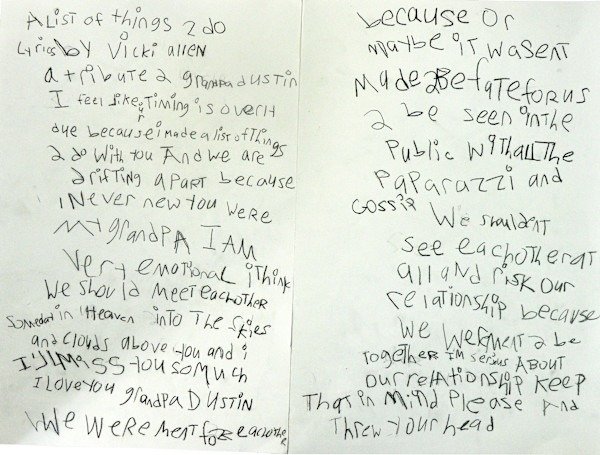 A LIST of things 2 do
Lyrics by Vicki allen
a tribute 2 grandpa DUSTIN
I feel like ur TiMing is overH
due because i made a list of Things
2 do With you And we are
drifting APArt because
i Never new you were
MY grandPA I AM
Very emotional i Think
We should Meet eachother
Someday in Heaven into The skies
and clouds above you and i
I'll Miss you so much
I Love you grandpa DUSTIN
We Were ment for eachother
because or
maybe iT wasent
Made 2 Be fate for us
2 be seen in the
Public With all The
PaParazzi and
Gossip We shouldent
see eachother at
all and risk our
relationship because
We Werment 2 be
together I'm serius ABOUT
our relationship Keep
That in Mind Please And
Threw your head